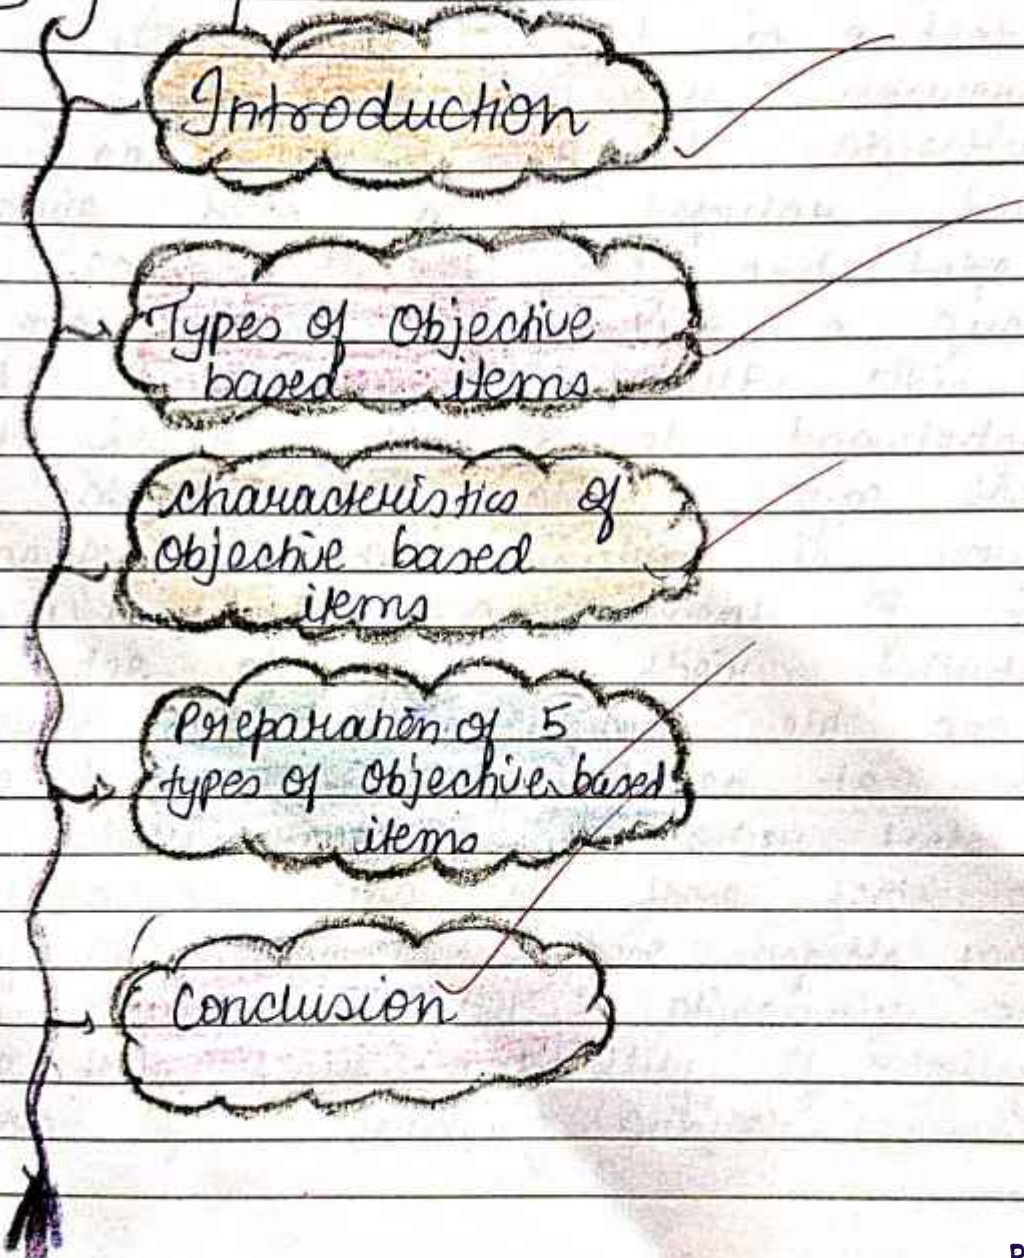 Introduction
Types of Objective
based items
characteristics of
Objective based
items
Preparation of 5
types of Objective based
items
Conclusion